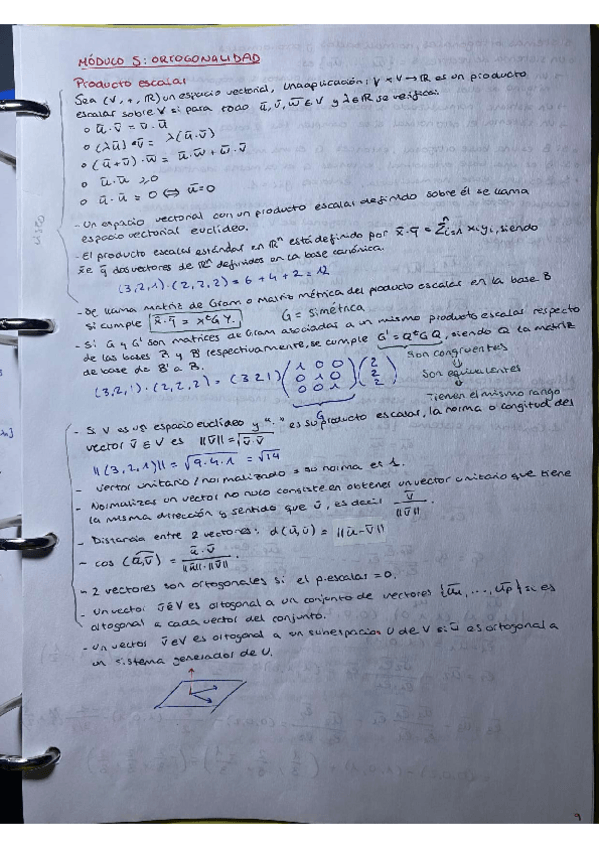 MÓDULO 5: ORTOGONALIDAD
Producto escalar
Sea (V, +, ℝ) un espacio vectorial, una aplicación: V × V → ℝ es un producto
escalar sobre V si para todo ū, v̄, w̄ ∈ V y λ ∈ ℝ se verifica:
o ū · v̄ = v̄ · ū
o (λū) · v̄ = λ(ū · v̄)
o (ū + v̄) · w̄ = ū · w̄ + w̄ · v̄
o ū · ū ≥ 0
o ū · ū = 0 ⟺ ū = 0
- Un espacio vectorial con un producto escalar definido sobre él se llama
espacio vectorial euclídeo.
- El producto escalar estándar en ℝⁿ está definido por x̄ · ȳ = Σⁿᵢ₌₁ xᵢyᵢ, siendo
x̄ e ȳ dos vectores de ℝⁿ definidos en la base canónica.
(3,2,1) · (2,2,2) = 6 + 4 + 2 = 12
- Se llama matriz de Gram o matriz métrica del producto escalar en la base B
si cumple x̄ · ȳ = XᵗGY. G = simétrica
- Si G y G' son matrices de Gram asociadas a un mismo producto escalar respecto
de las bases B y B' respectivamente, se cumple G' = QᵗGQ, siendo Q la matriz
de base de B' a B.
son congruentes
(3,2,1) · (2,2,2) = (3 2 1) (1 0 0 / 0 1 0 / 0 0 1) (2 / 2 / 2)
G
son equivalentes
Tienen el mismo rango
- Si V es un espacio euclídeo y "·" es su producto escalar, la norma o longitud del
vector v̄ ∈ V es ||v̄|| = √v̄·v̄
||(3,2,1)|| = √9·4·1 = √14
- Vector unitario / normalizado → su norma es 1.
- Normalizar un vector no nulo consiste en obtener un vector unitario que tiene
la misma dirección y sentido que v̄, es decir v̄/||v̄||.
- Distancia entre 2 vectores: d(ū, v̄) = ||ū - v̄||
- cos (ū, v̄) = ū · v̄ / ||ū|| · ||v̄||.
- 2 vectores son ortogonales si el p. escalar = 0.
- Un vector v̄ ∈ V es ortogonal a un conjunto de vectores {ū₁, ..., ūp} si es
ortogonal a cada vector del conjunto.
- Un vector v̄ ∈ V es ortogonal a un subespacio U de V si ū es ortogonal a
un sistema generador de U.
9